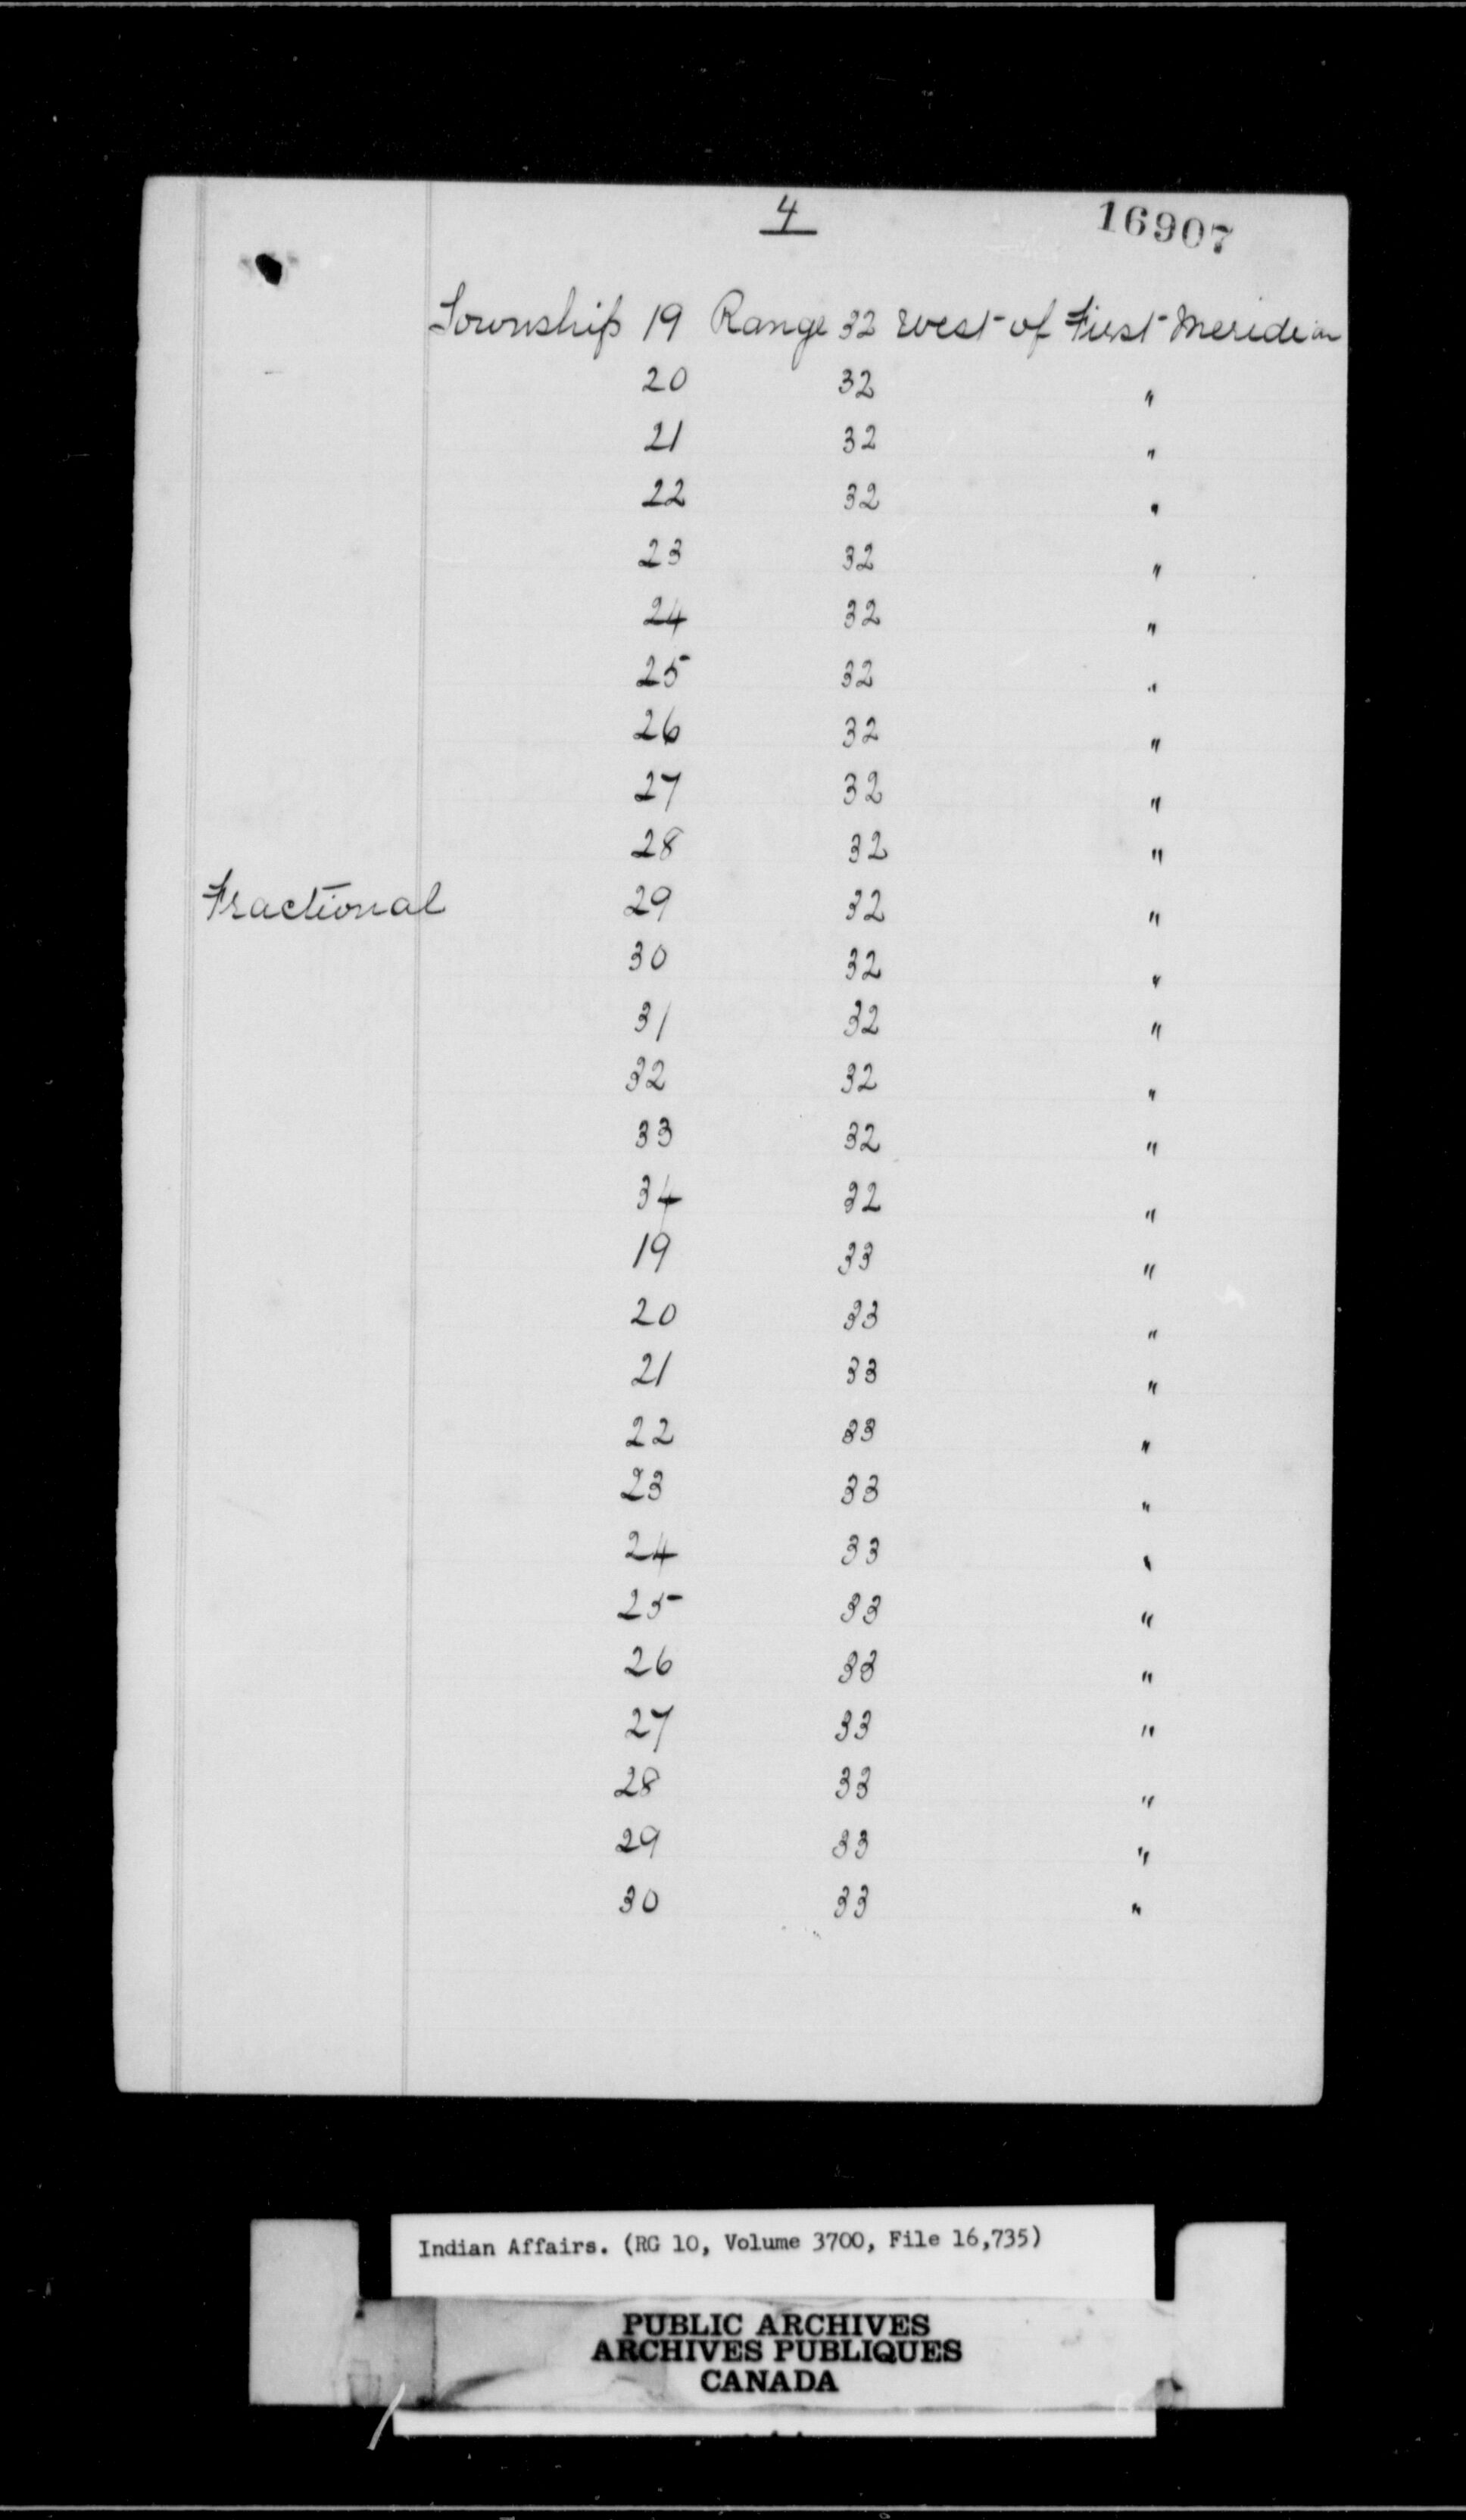 4
16907
Township 19 Range 32 West of First Meridian
20 32 "
21 32 "
22 32 "
23 32 "
24 32 "
25 32 "
26 32 "
27 32 "
28 32 "
Fractional 29 32 "
30 32 "
31 32 "
32 32 "
33 32 "
34 32 "
19 33 "
20 33 "
21 33 "
22 33 "
23 33 "
24 33 "
25 33 "
26 33 "
27 33 "
28 33 "
29 33 "
30 33 "
Indian Affairs. (RG 10, Volume 3700, File 16,735)
PUBLIC ARCHIVES
ARCHIVES PUBLIQUES
CANADA